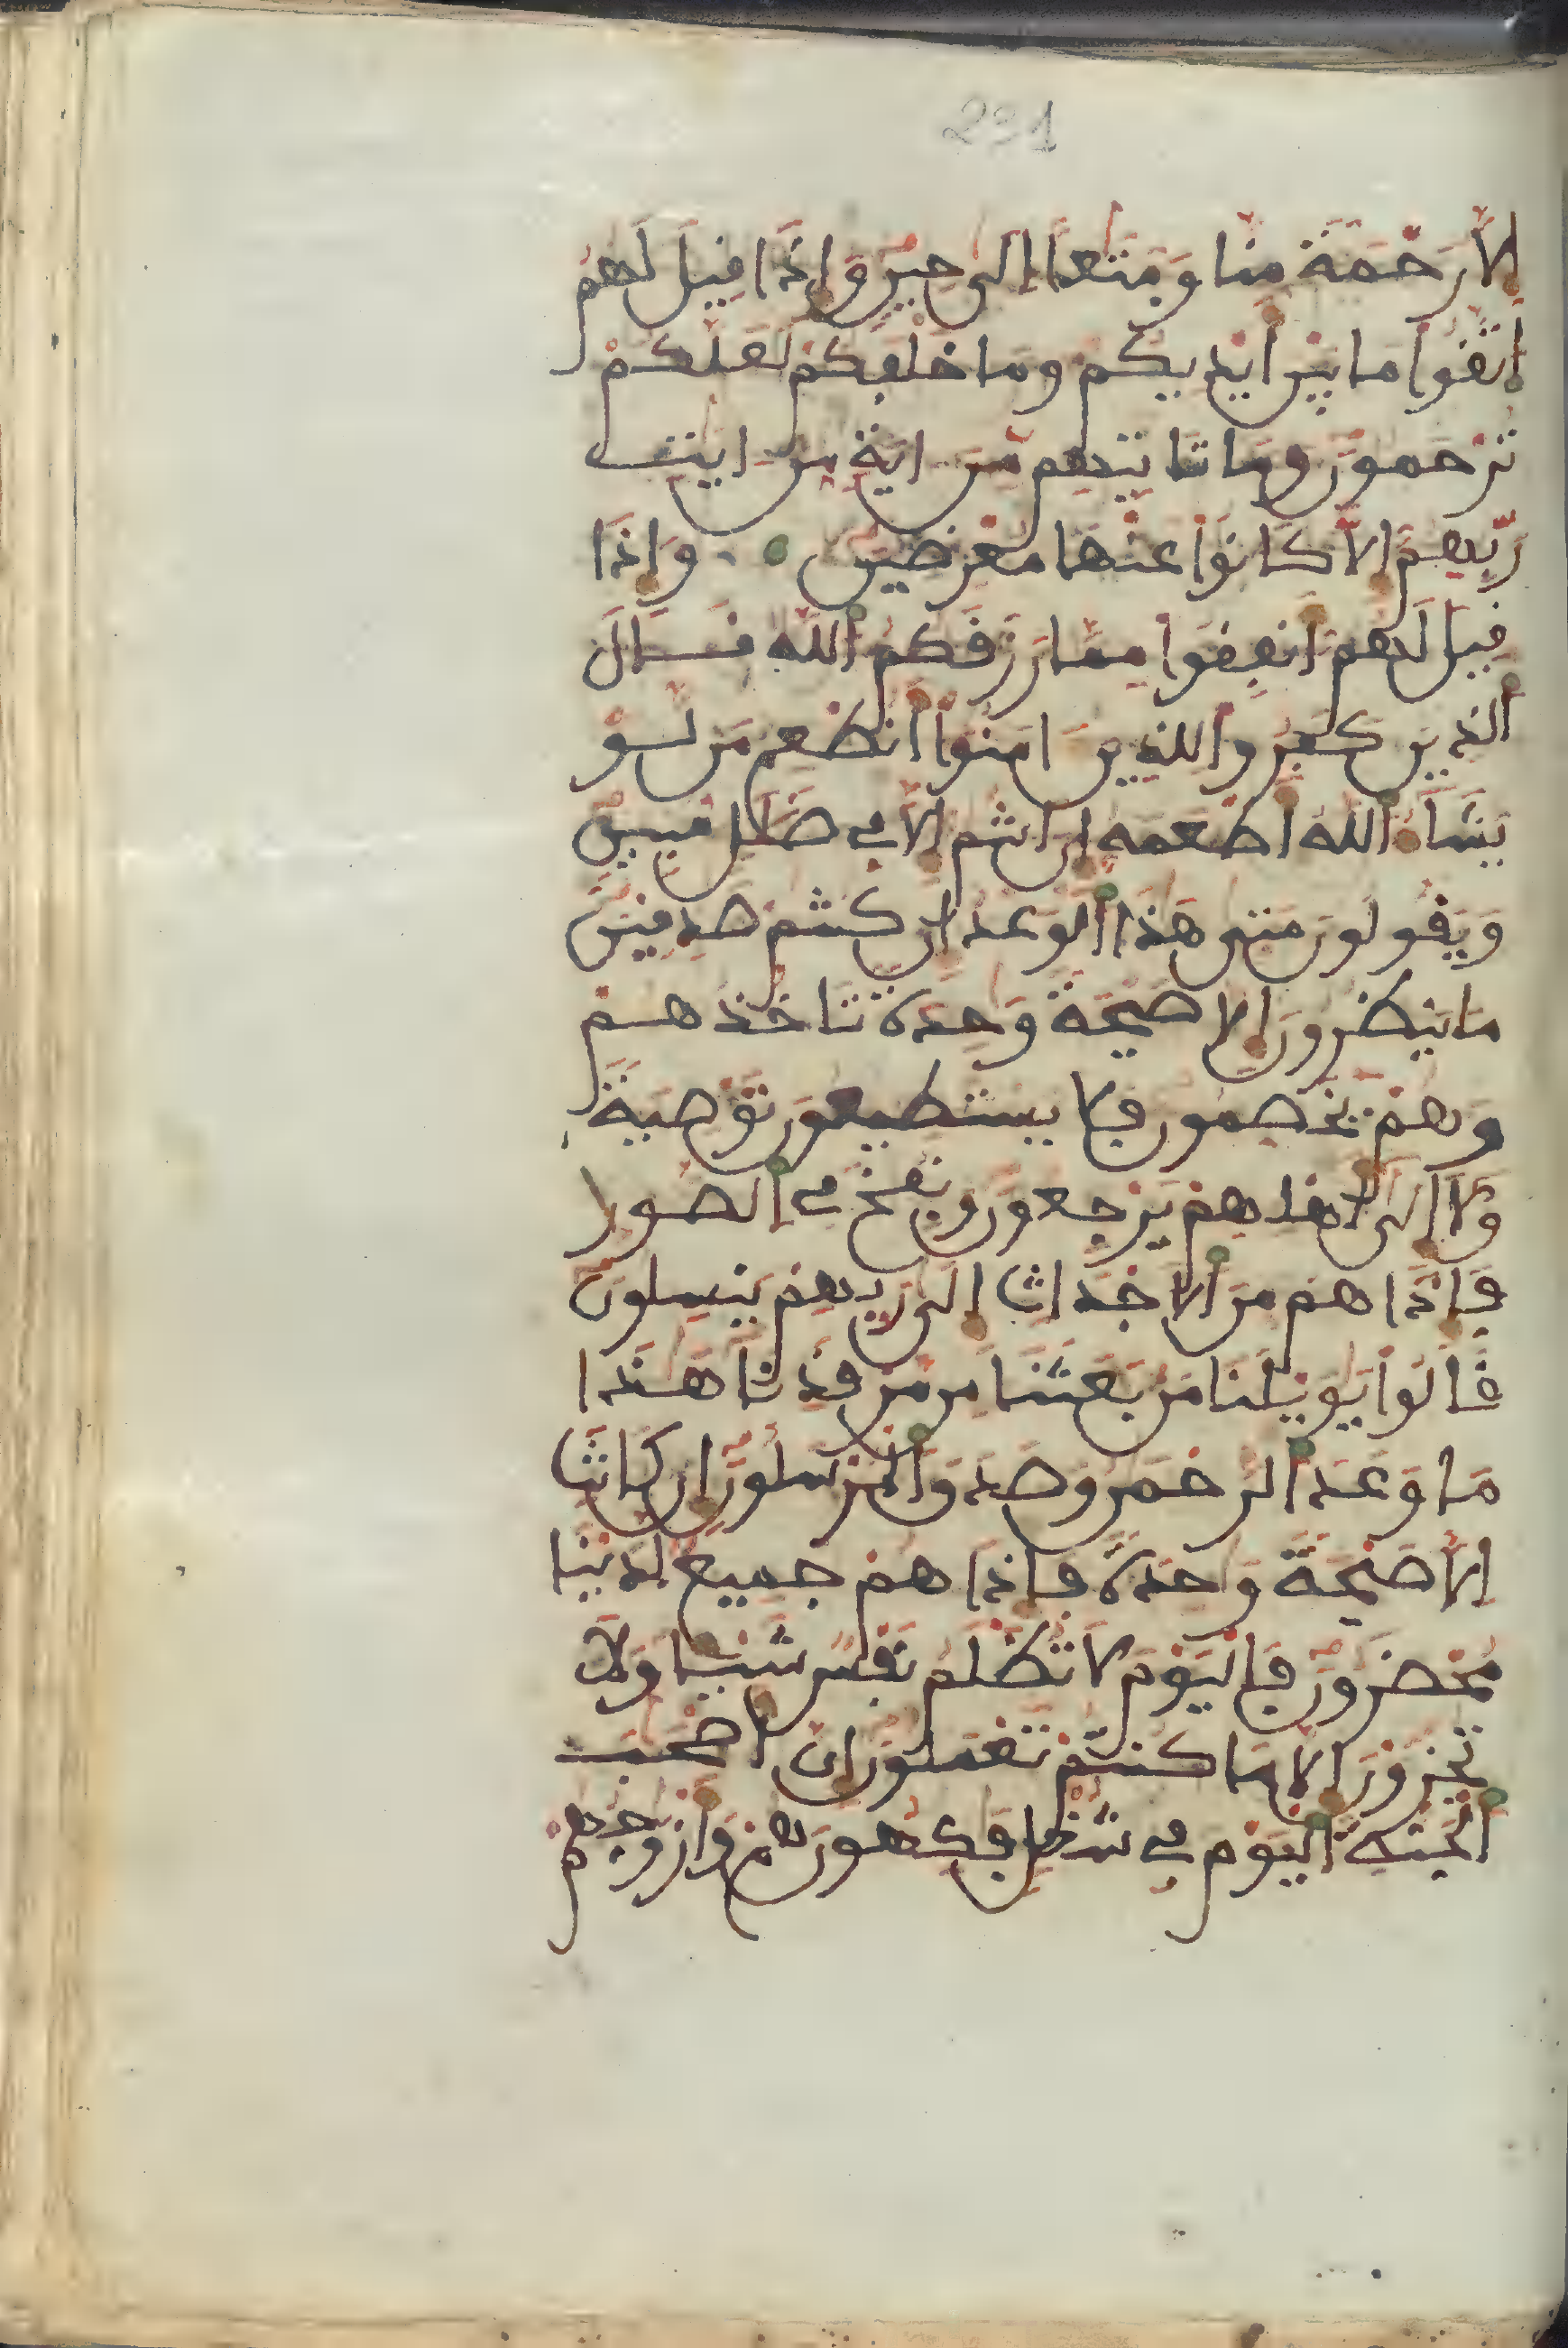 231
إلا رحمة منا ومتعا إلى حين وإذا قيل لهم
اتقوا ما بين أيديكم وما خلفكم لعلكم
ترحمون وما تأتيهم من اية من ايت
ربهم إلا كانوا عنها معرضين وإذا
قيل لهم أنفقوا مما رزقكم الله قال
الذين كفروا للذين امنوا أنطعم من لو
يشاء الله أطعمه إن أنتم إلا في ضلل مبين
ويقولون متى هذا الوعد إن كنتم صدقين
ما ينظرون إلا صيحة وحدة تأخذهم
وهم يخصمون فلا يستطيعون توصية
ولا إلى أهلهم يرجعون ونفخ في الصور
فإذا هم من الأجداث إلى ربهم ينسلون
قالوا يويلنا من بعثنا من مرقدنا هذا
ما وعد الرحمن وصدق المرسلون إن كانت
إلا صيحة وحدة فإذا هم جميع لدينا
محضرون فاليوم لا تظلم نفس شيئا ولا
تجزون إلا ما كنتم تعملون إن أصحب
الجنة اليوم في شغل فكهون هم وأزوجهم